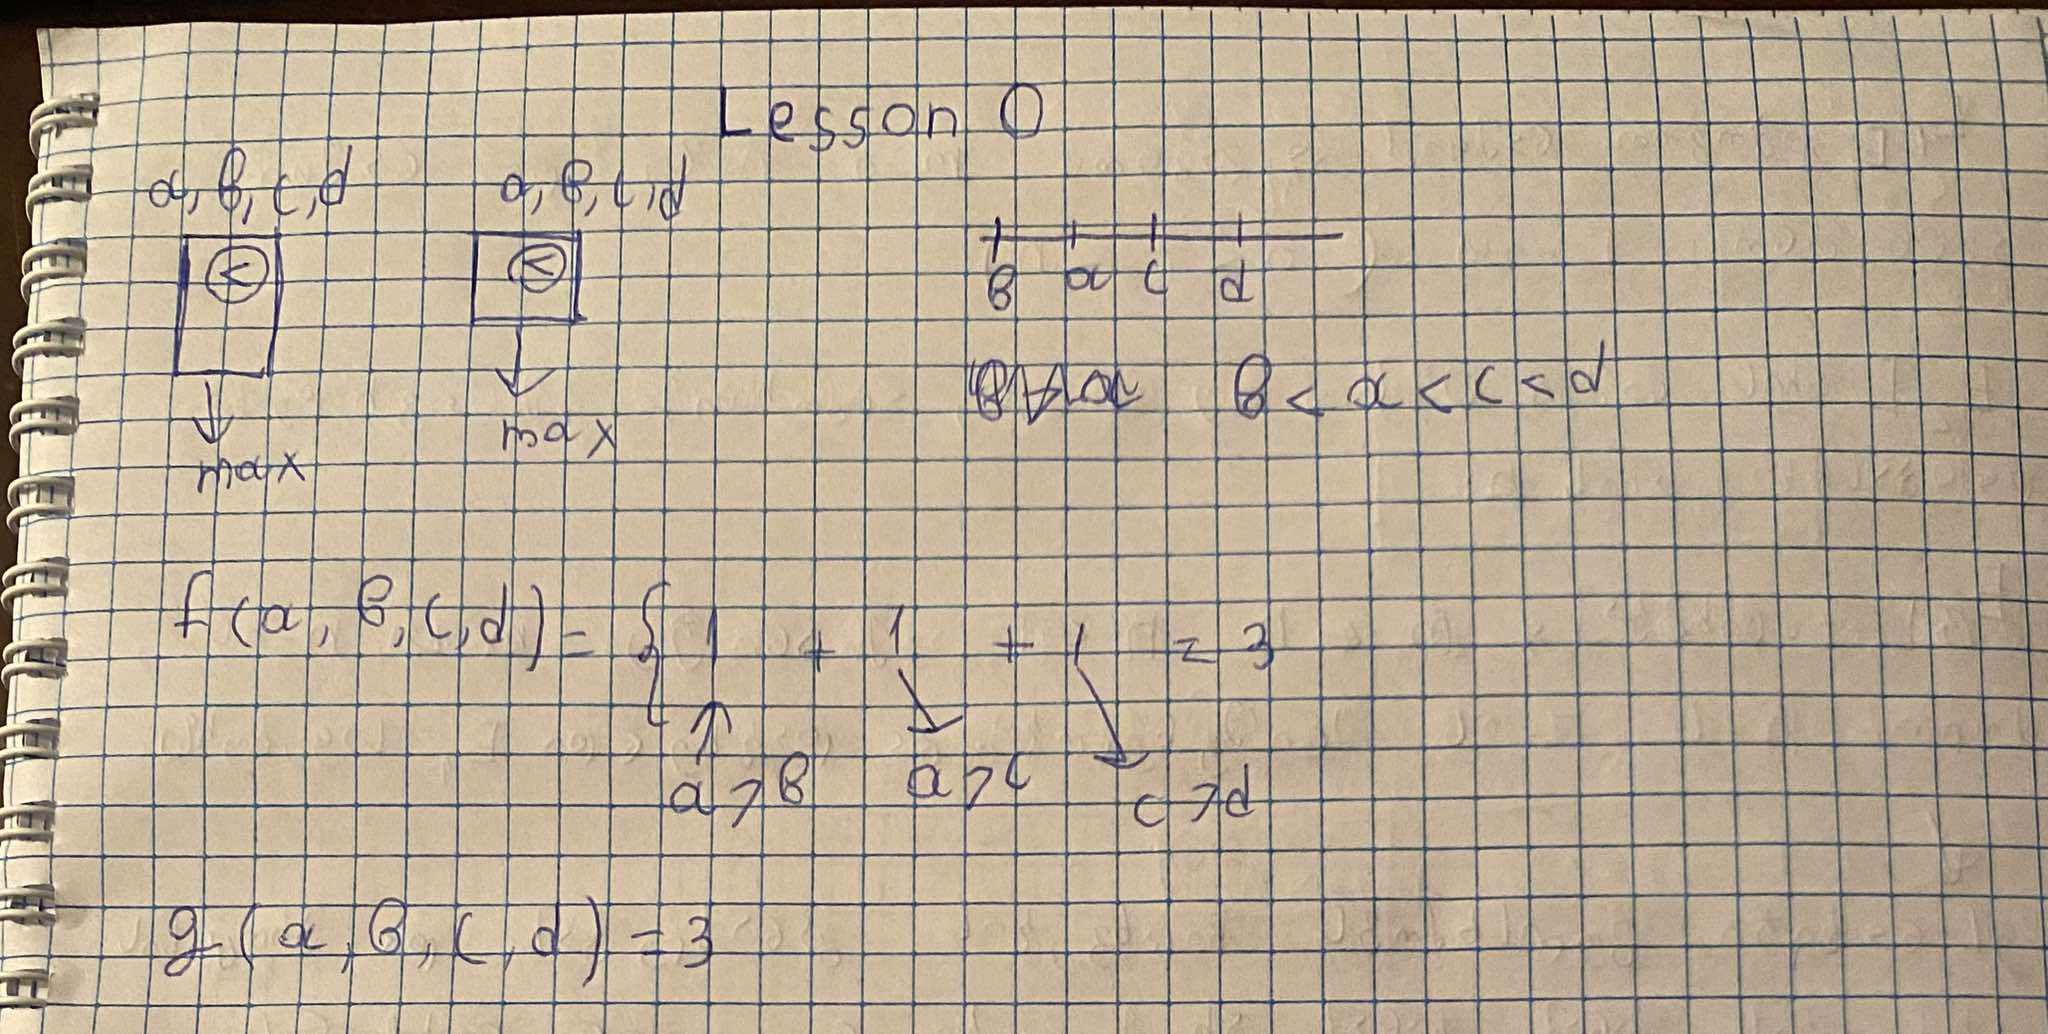 Lesson 0
a, b, c, d
a, b, c, d
<
<
b a c d
max
max
b < a < c < d
f(a, b, c, d) = { 1 + 1 + 1 = 3
a > b
a > c
c > d
g(a, b, c, d) = 3